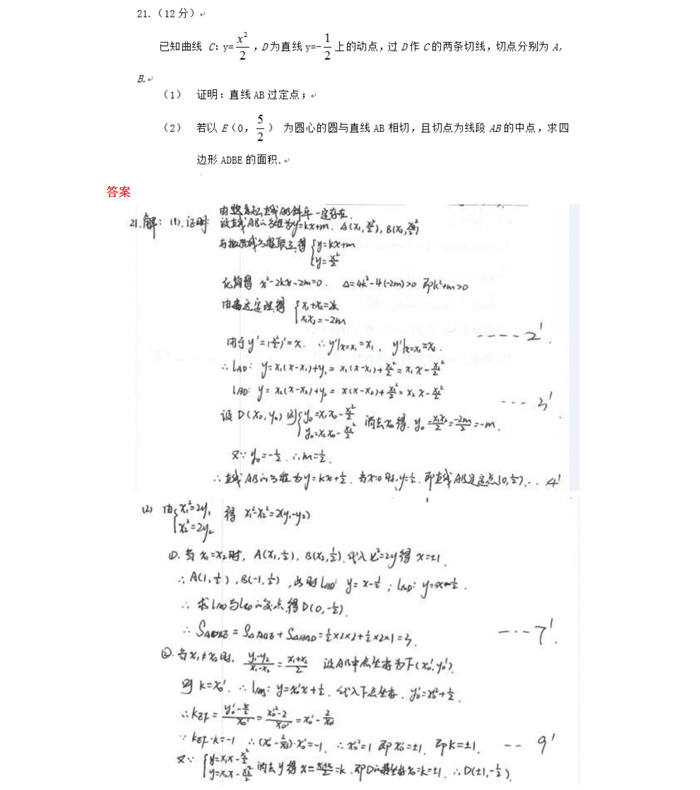 21.（12分）
已知曲线 C：y=x²/2，D为直线y=-1/2上的动点，过D作C的两条切线，切点分别为A，
B.
（1） 证明：直线AB过定点；
（2） 若以E（0，5/2）为圆心的圆与直线AB相切，且切点为线段AB的中点，求四
边形ADBE的面积.
答案
由题意知直线AB斜率一定存在.
21.解：(1).证明：设直线AB的方程为y=kx+m. A(x₁,x₁²/2), B(x₂,x₂²/2)
与抛物线方程联立得 {y=kx+m
y=x²/2
化简得 x²-2kx-2m=0. Δ=4k²-4(-2m)>0 即k²+m>0
由韦达定理得 {x₁+x₂=2k
x₁x₂=-2m
由于y'=(x²/2)'=x. ∴y'|x=x₁=x₁, y'|x=x₂=x₂. ----2'
∴lAD: y=x₁(x-x₁)+y₁=x₁(x-x₁)+x₁²/2=x₁x-x₁²/2
lBD: y=x₂(x-x₂)+y₂=x(x-x₂)+x₂²/2=x₂x-x₂²/2
设D(x₀,y₀) 则{y₀=x₁x₀-x₁²/2
y₀=x₂x₀-x₂²/2 消去x₀得. y₀=x₁x₂/2=-2m/2=-m. ---3'
又∵y₀=-1/2 ∴m=1/2.
∴直线AB的方程为y=kx+1/2. 当x=0时,y=1/2. 即直线AB过定点(0,1/2)...4'
(2) 由{x₁²=2y₁
x₂²=2y₂ 得 x₁²-x₂²=2(y₁-y₂)
①.当x₁=x₂时, A(x₁,1/2), B(x₂,1/2).代入x²=2y得x=±1.
∴A(1,1/2), B(-1,1/2), 此时lAD: y=x-1/2; lBD: y=-x-1/2.
∴求lAD与lBD的交点得D(0,-1/2).
∴SADBE=SΔABE+SΔABD=1/2×2×2+1/2×2×1=3. ---7'
②.当x₁≠x₂时, (y₁-y₂)/(x₁-x₂)=(x₁+x₂)/2 设AB中点坐标为F(x₀',y₀').
则k=x₀'. ∴lAB: y=x₀'x+1/2. 代入F点坐标. y₀'=x₀'²+1/2.
∴kEF=(y₀'-5/2)/x₀'=(x₀'²-2)/x₀'=x₀'-2/x₀'
∵kEF·k=-1 ∴(x₀'-2/x₀')·x₀'=-1. ∴x₀'²=1 即x₀'=±1. 即k=±1. -- 9'
又∵{y=x₁x-x₁²/2
y=x₂x-x₂²/2 消去y得x=(x₁+x₂)/2=k. 即D的横坐标x₀=k=±1. ∴D(±1,-1/2).